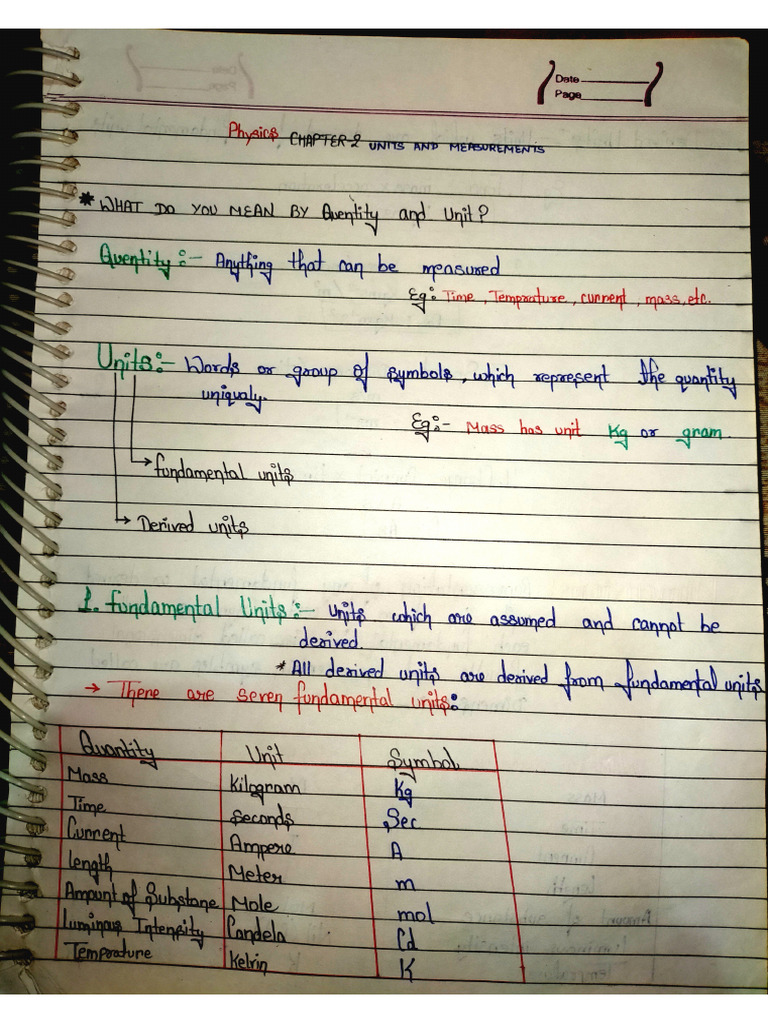 Date
Page
Physics CHAPTER-2 UNITS AND MEASUREMENTS
* WHAT DO YOU MEAN BY Quentity and Unit?
Quentity:- Anything that can be measured
Eg: Time, Temprature, current, mass, etc.
Units:- Words or group of symbols, which represent the quantity
uniqualy.
Eg:- Mass has unit Kg or gram.
→ fundamental units
→ Derived units
1. fundamental Units:- Units which are assumed and cannot be
derived.
* All derived units are derived from fundamental units
→ There are seven fundamental units:
Quantity Unit Symbol
Mass Kilogram Kg
Time Seconds Sec
Current Ampere A
length Meter m
Amount of Substane Mole mol
Luminous Intensity Candela Cd
Temprature Kelvin K